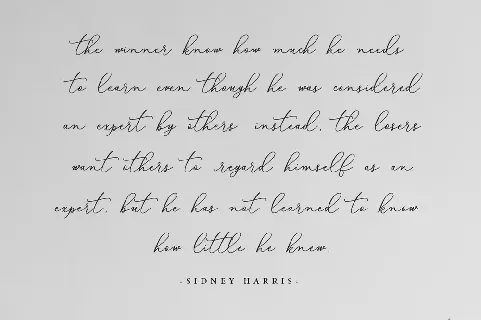 the winner know how much he needs
to learn even though he was considered
an expert by others instead, the losers
want others to regard himself as an
expert, but he has not learned to know
how little he knew
-SIDNEY HARRIS-